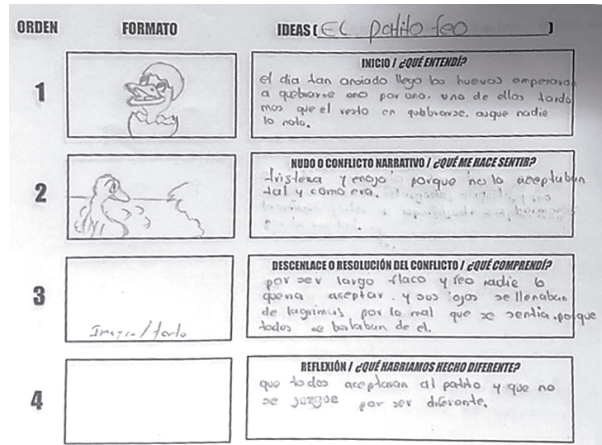 ORDEN FORMATO IDEAS ( EL patito feo )
INICIO / ¿QUÉ ENTENDÍ?
1
el dia tan anciado llego los huevos emperaron
a quebrarse uno por uno. uno de ellos tardo
mas que el resto en quebrarse. auque nadie
lo noto.
NUDO O CONFLICTO NARRATIVO / ¿QUÉ ME HACE SENTIR?
2
tristeza y enojo porque no lo aceptaban
tal y como era.
DESCENLACE O RESOLUCIÓN DEL CONFLICTO / ¿QUÉ COMPRENDÍ?
3
por ser largo flaco y feo nadie lo
queria aceptar. y sus ojos se llenaban
de lagrimas por lo mal que se sentia. porque
todos se burlaban de el.
Imagen/texto
REFLEXIÓN / ¿QUÉ HABRIAMOS HECHO DIFERENTE?
4
que todos aceptaran al patito y que no
se juzgue por ser diferente.